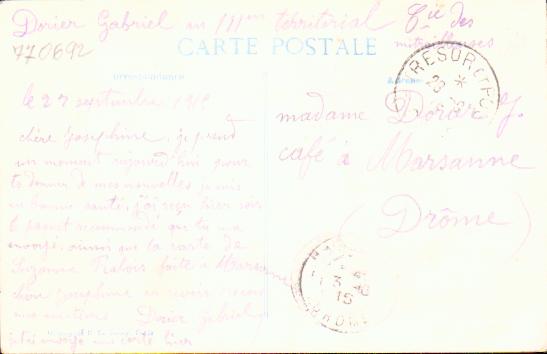 Dorier Gabriel au 111em territorial Cie des
mitrailleuses
770692
CARTE POSTALE
Correspondance
le 27 septembre
chère Josephine, je prend
un moment aujourd'hui pour
te donner de mes nouvelles je suis
en bonne santé, j'ai reçu hier soir
le paquet recommandé que tu m'a
envoyé, ainsi que la carte de
Suzanne faite a Marsanne
chère Josephine
Dorier Gabriel
je t'ai envoyé une carte hier
TRESOR
madame Dorier J.
café à Marsanne
(Drôme)
DROME